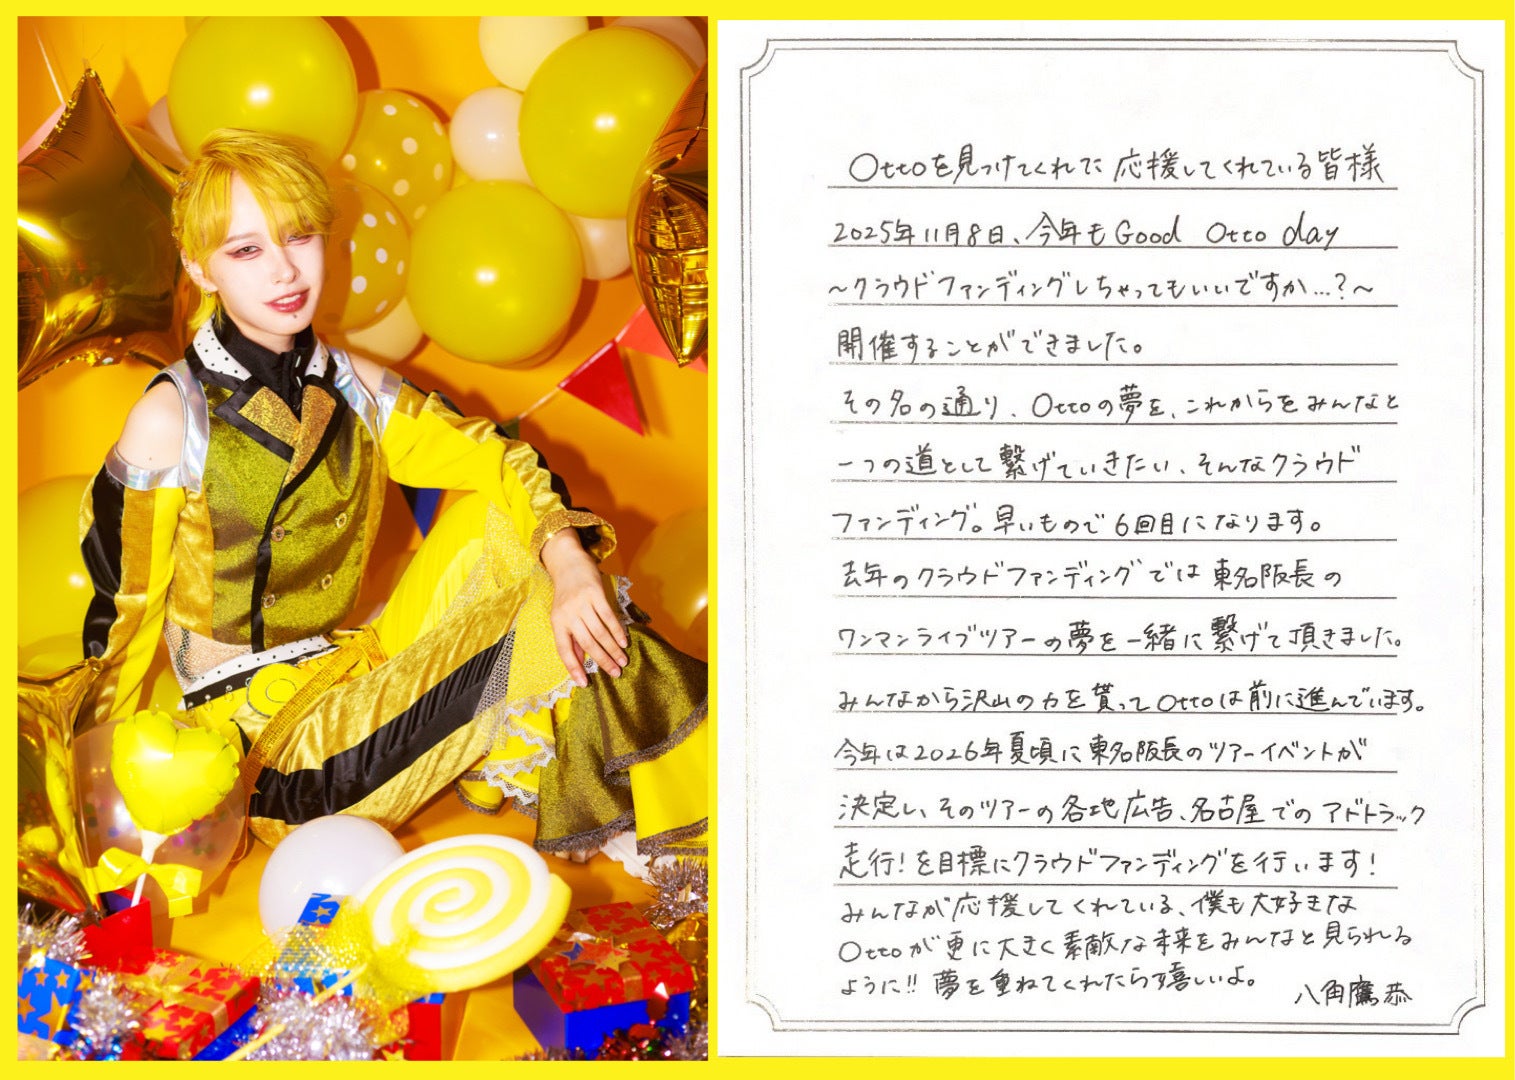 Ottoを見つけてくれてに応援してくれている皆様
2025年11月8日、今年もGood Otto day
～クラウドファンディングしちゃってもいいですか…?～
開催することができました。
その名の通り、Ottoの夢を、これからをみんなと
一つの道として繋げていきたい、そんなクラウド
ファンディング。早いもので6回目になります。
去年のクラウドファンディングでは東名阪長の
ワンマンライブツアーの夢を一緒に繋げて頂きました。
みんなから沢山の力を貰ってOttoは前に進んでいます。
今年は2026年夏頃に東名阪長のツアーイベントが
決定し、そのツアーの各地広告、名古屋でのアドトラック
走行!を目標にクラウドファンディングを行います!
みんなが応援してくれている、僕も大好きな
Ottoが更に大きく素敵な未来をみんなと見られる
ように!!夢を重ねてくれたら嬉しいよ。
八角鷹恭